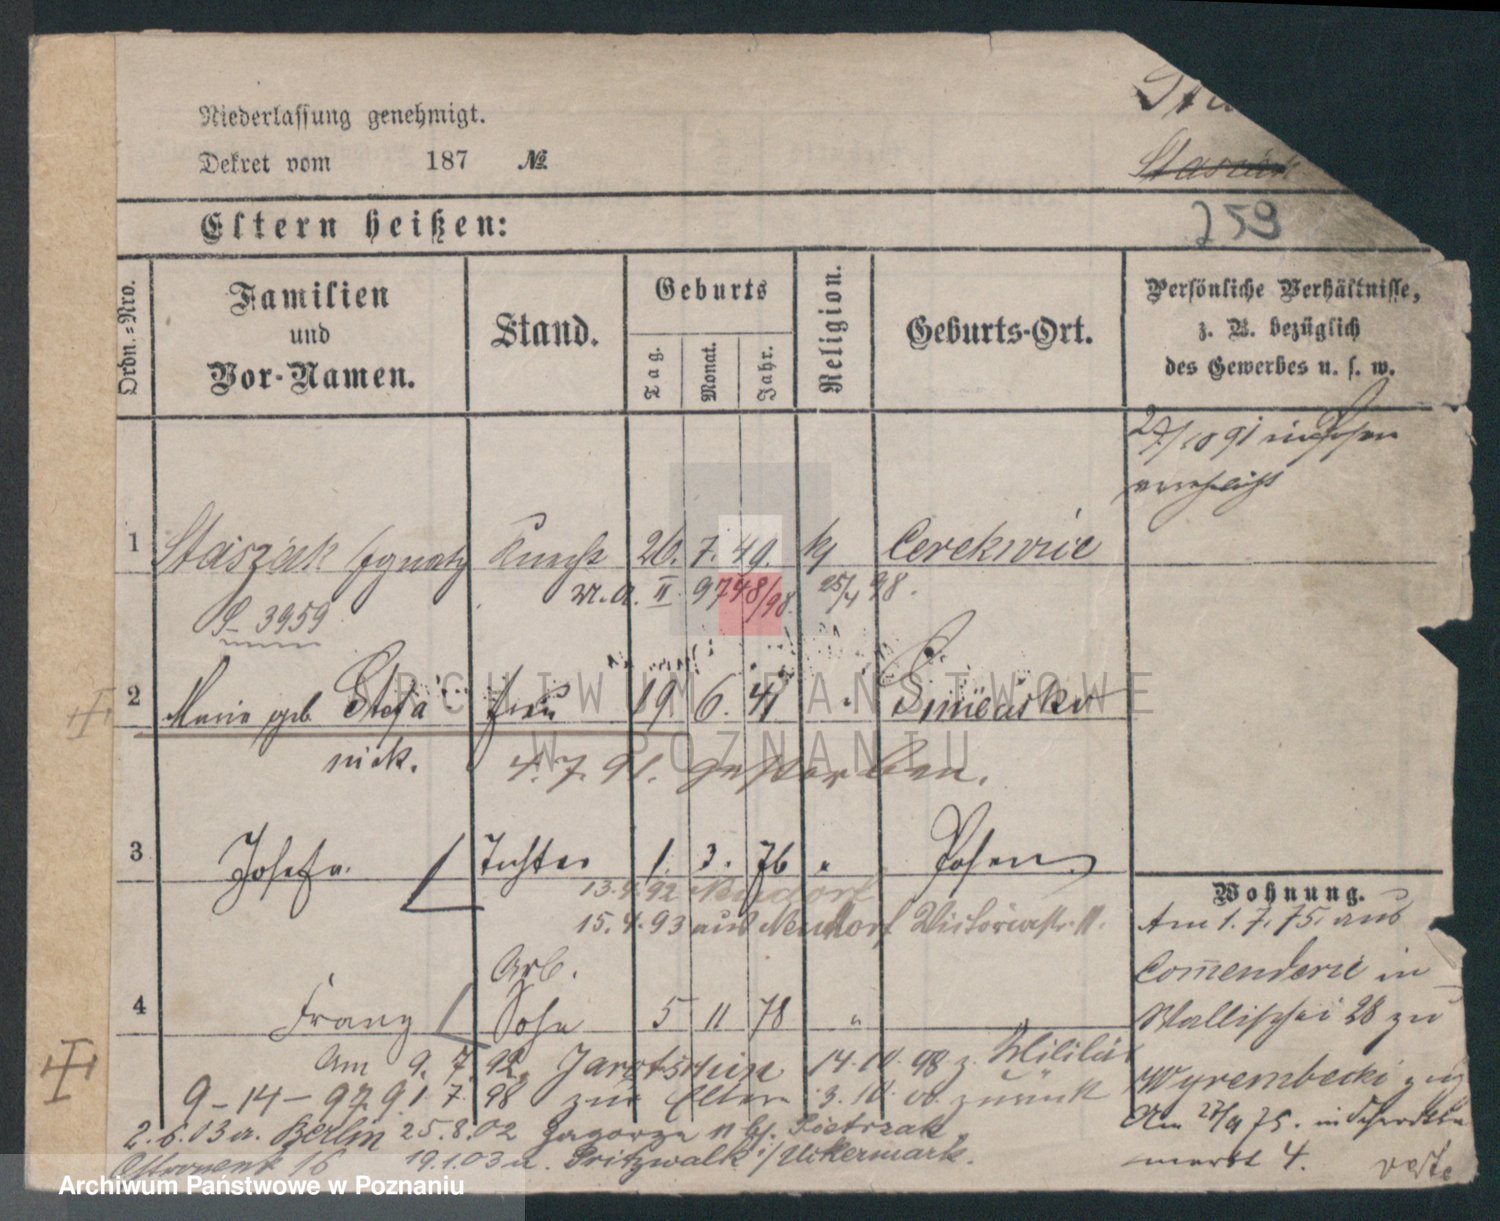 Niederlassung genehmigt.
Dekret vom 187 №
Staszak
259
Eltern heißen:
Ordn.=Nro.
Familien
und
Vor-Namen.
Stand.
Geburts
Tag.
Monat.
Jahr.
Religion.
Geburts-Ort.
Persönliche Verhältnisse,
z. B. bezüglich
des Gewerbes u. s. w.
27/10 91 in Posen
1 Staszak Ignatz Knecht 26. 7. 49. kj Cerekwic
M. A. II. 9748/98. 25/4 98.
S- 3959
2 Marie geb. Stefa Frau 19 6. 41 "
nick. 4. 7. 91. gestorben.
3 Josefa. Tochter 1. 3. 76 " Posen
13. 9. 92 Neudorf
15. 4. 93 aus Neudorf Victoriastr. 11.
Arb.
4 Franz Sohn 5 11 78 "
Am 9. 7. 92. Jarotschin 14. 10. 98 z. Militär
9-14-97 9. 7. 98 zur Eltern 3. 10. 00. zurück
2. 6. 03 a. Berlin 25. 8. 02 Zagorze n bj. Pietrzak
16 19.1.03 a. Pritzwalk i/Uckermark.
Wohnung.
Am 1. 7. 75. aus
Com̅enderie in
Wallischei 28 zu
Wyrembecki
Am 27/9 75. in
markt 4. verte
ARCHIWUM PAŃSTWOWE
W POZNANIU
Archiwum Państwowe w Poznaniu